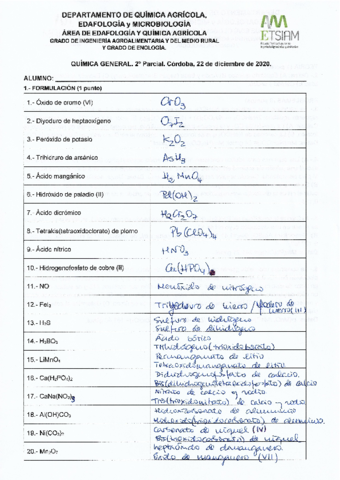 DEPARTAMENTO DE QUÍMICA AGRÍCOLA,
EDAFOLOGÍA y MICROBIOLOGÍA
ÁREA DE EDAFOLOGÍA Y QUÍMICA AGRÍCOLA
GRADO DE INGENIERÍA AGROALIMENTARIA Y DEL MEDIO RURAL
Y GRADO DE ENOLOGÍA.
ETSIAM
QUÍMICA GENERAL. 2º Parcial. Córdoba, 22 de diciembre de 2020.
ALUMNO:
1.- FORMULACIÓN (1 punto)
1.- Óxido de cromo (VI) CrO3
2.- Diyoduro de heptaoxígeno O7I2
3.- Peróxido de potasio K2O2
4.- Trihidruro de arsénico AsH3
5.- Ácido mangánico H2MnO4
6.- Hidróxido de paladio (II) Pd(OH)2
7. Ácido dicrómico H2Cr2O7
8.- Tetrakis(tetraoxidoclorato) de plomo Pb(ClO4)4
9.- Ácido nítrico HNO3
10.- Hidrogenofosfato de cobre (II) Cu(HPO4)
11.- NO Monóxido de nitrógeno
12.- FeI3 Triyoduro de hierro /
13.- H2S Sulfuro de hidrógeno
Sulfuro de dihidrógeno
14.- H3BO3 Ácido bórico
Trihidrogeno(trioxidoborato)
15.- LiMnO4 Permanganato de litio
Tetraoxidomanganato de litio
16.- Ca(H2PO4)2 Dihidrogenofosfato de calcio.
Bis(dihidrogenotetraoxidofosfato) de calcio
17.- CaNa(NO3)3 Nitrato de calcio y sodio
Tris(trioxidonitrato) de calcio y sodio
18.- Al(OH)CO3 Hidroxicarbonato de aluminio
19.- Ni(CO3)2 Carbonato de níquel (IV)
Bis(trioxidocarbonato) de níquel
20.- Mn2O7 Heptaóxido de dimanganeso
Óxido de manganeso (VII)